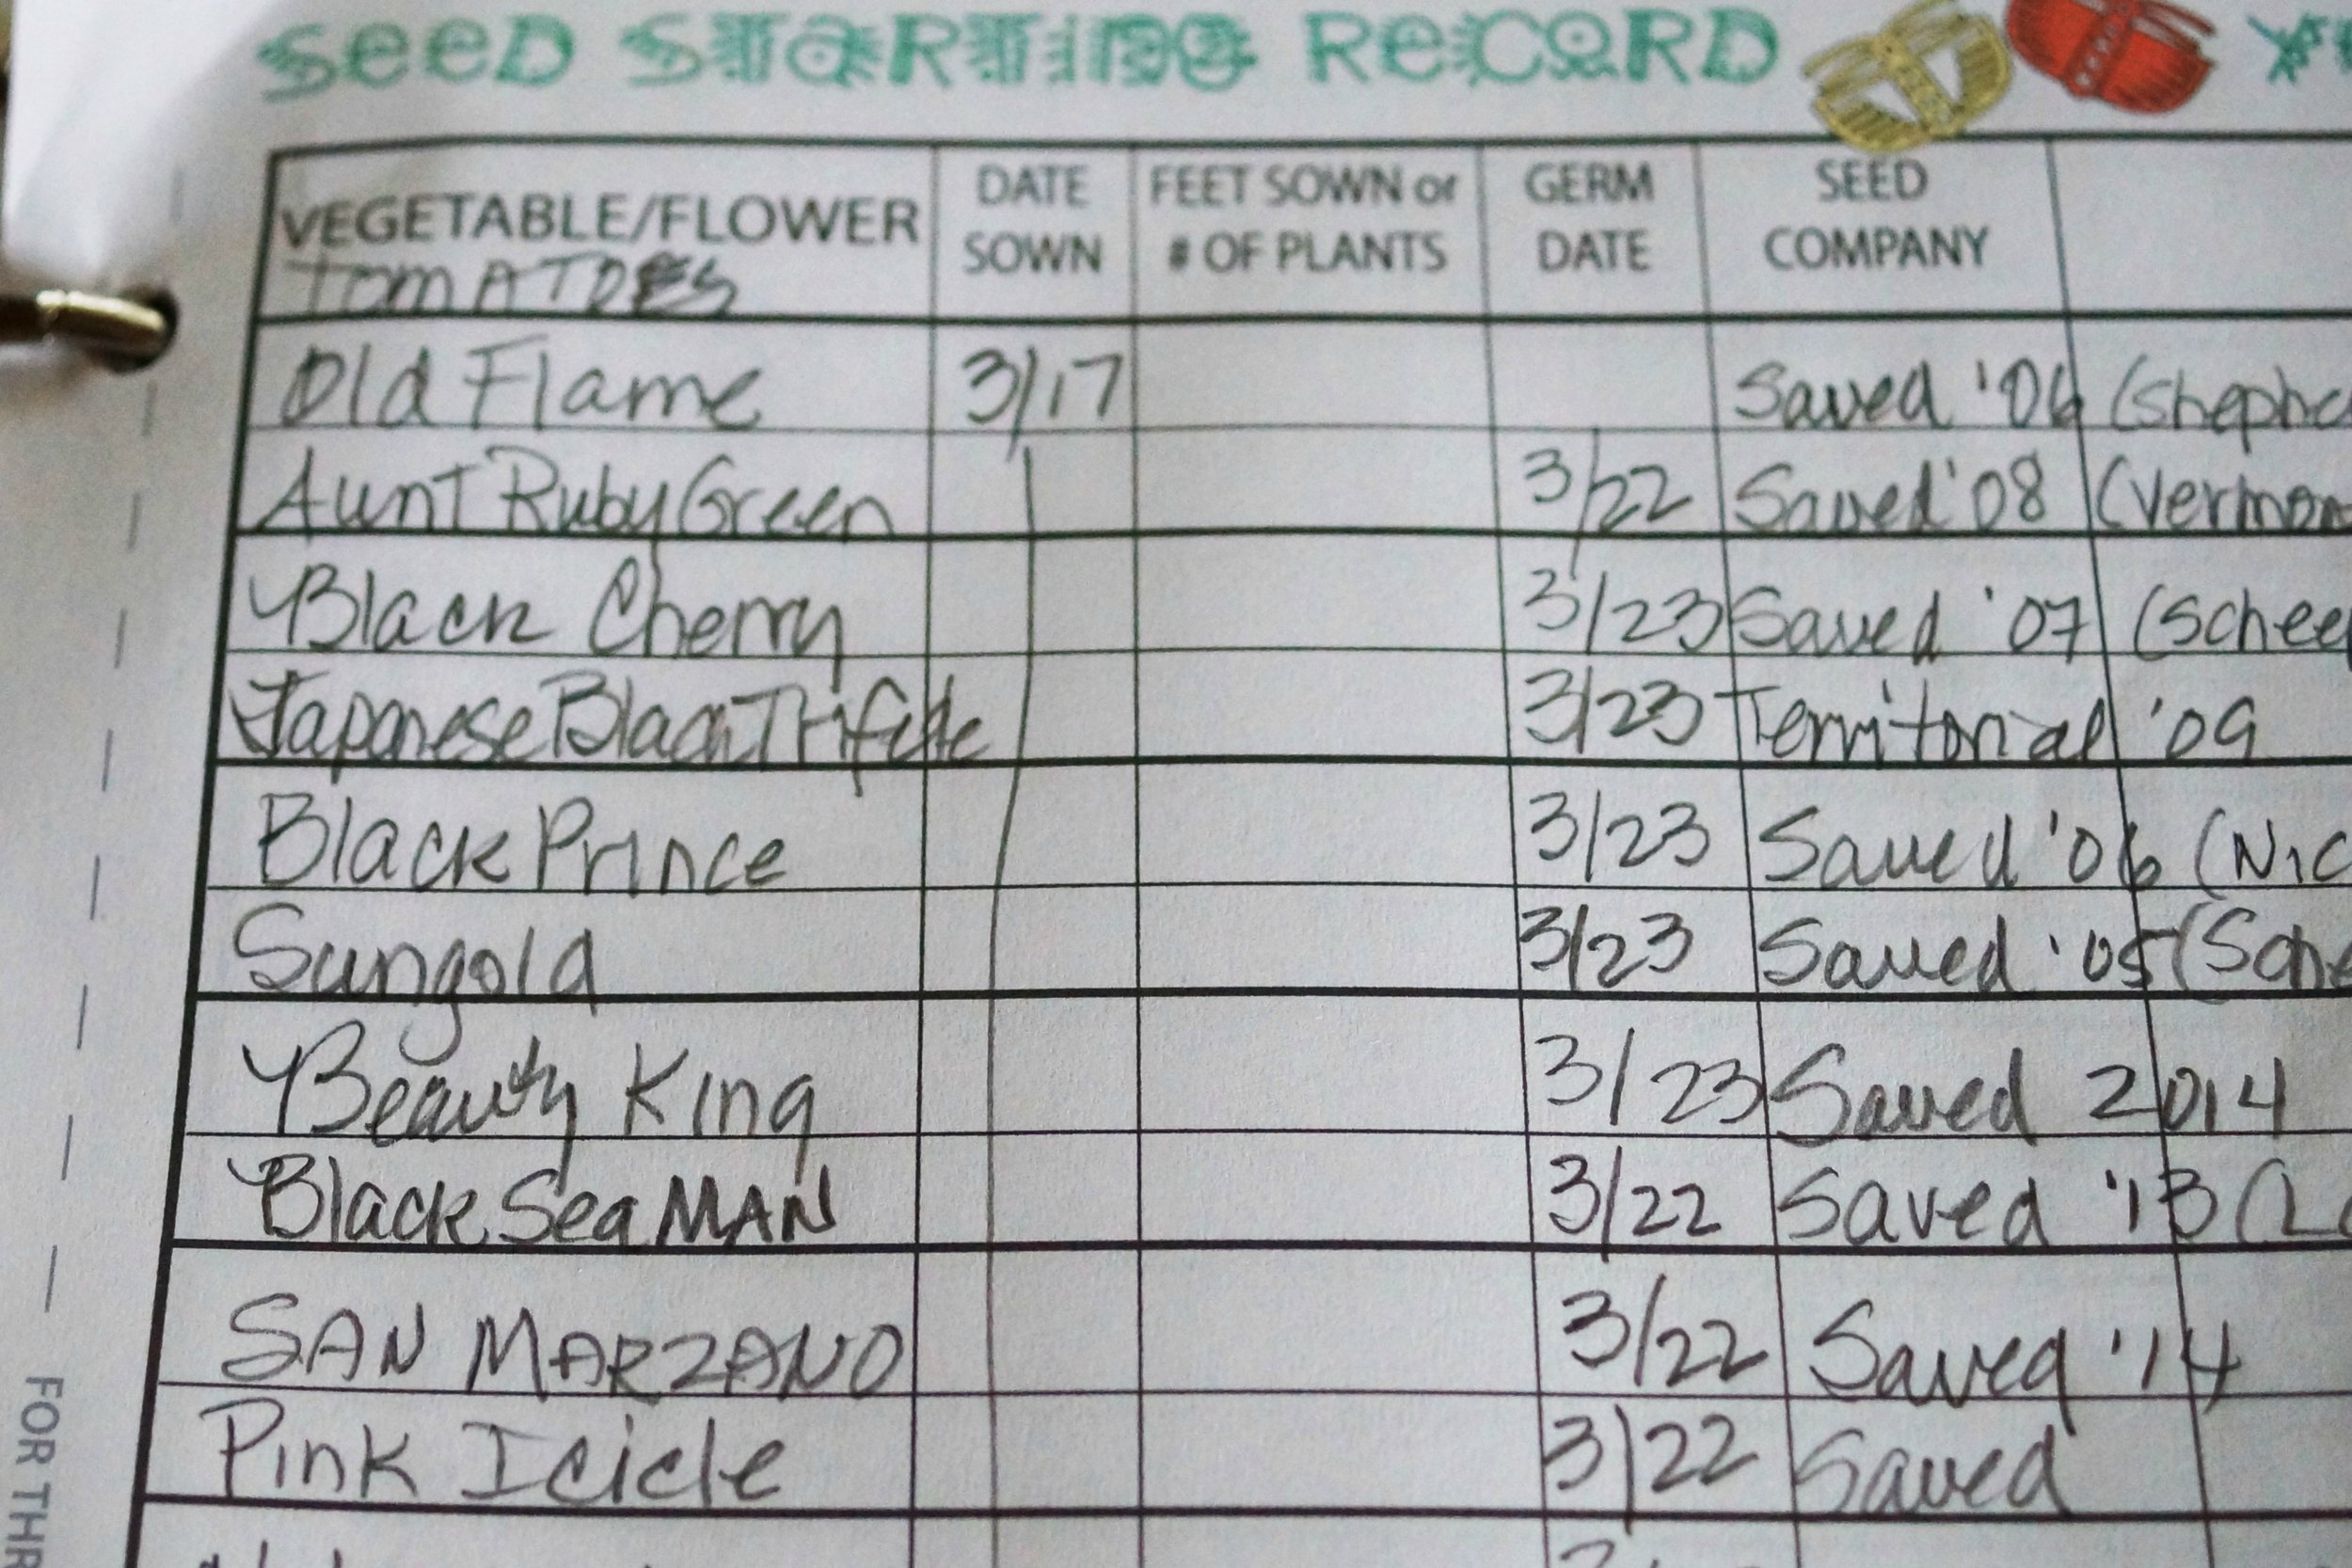 SEED STARTING RECORD
VEGETABLE/FLOWER DATE SOWN FEET SOWN or # OF PLANTS GERM DATE SEED COMPANY
TOMATOES
Old Flame 3/17 Saved '06 (Shephe
Aunt Ruby Green 3/22 Saved '08 (Vermon
Black Cherry 3/23 Saved '07 (Schee
Japanese Black Trifele 3/23 Territorial '09
Black Prince 3/23 Saved '06 (Nic
Sungold 3/23 Saved '05 (Sche
Beauty King 3/23 Saved 2014
Black Sea MAN 3/22 Saved '13 (
SAN MARZANO 3/22 Saved '14
Pink Icicle 3/22 Saved
FOR THR